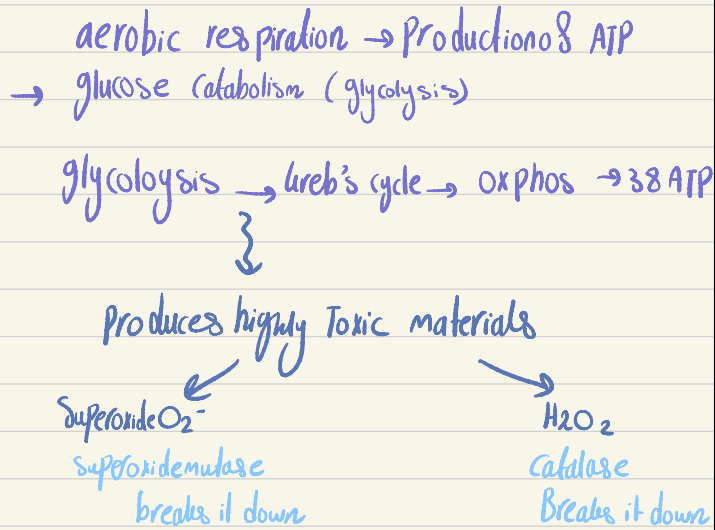 aerobic respiration → Production of ATP
→ glucose Catabolism (glycolysis)
glycoloysis → kreb's cycle → oxphos → 38 ATP
Produces highly Toxic materials
Superoxide O₂⁻ H2O₂
Superoxidemutase Catalase
breaks it down Breaks it down